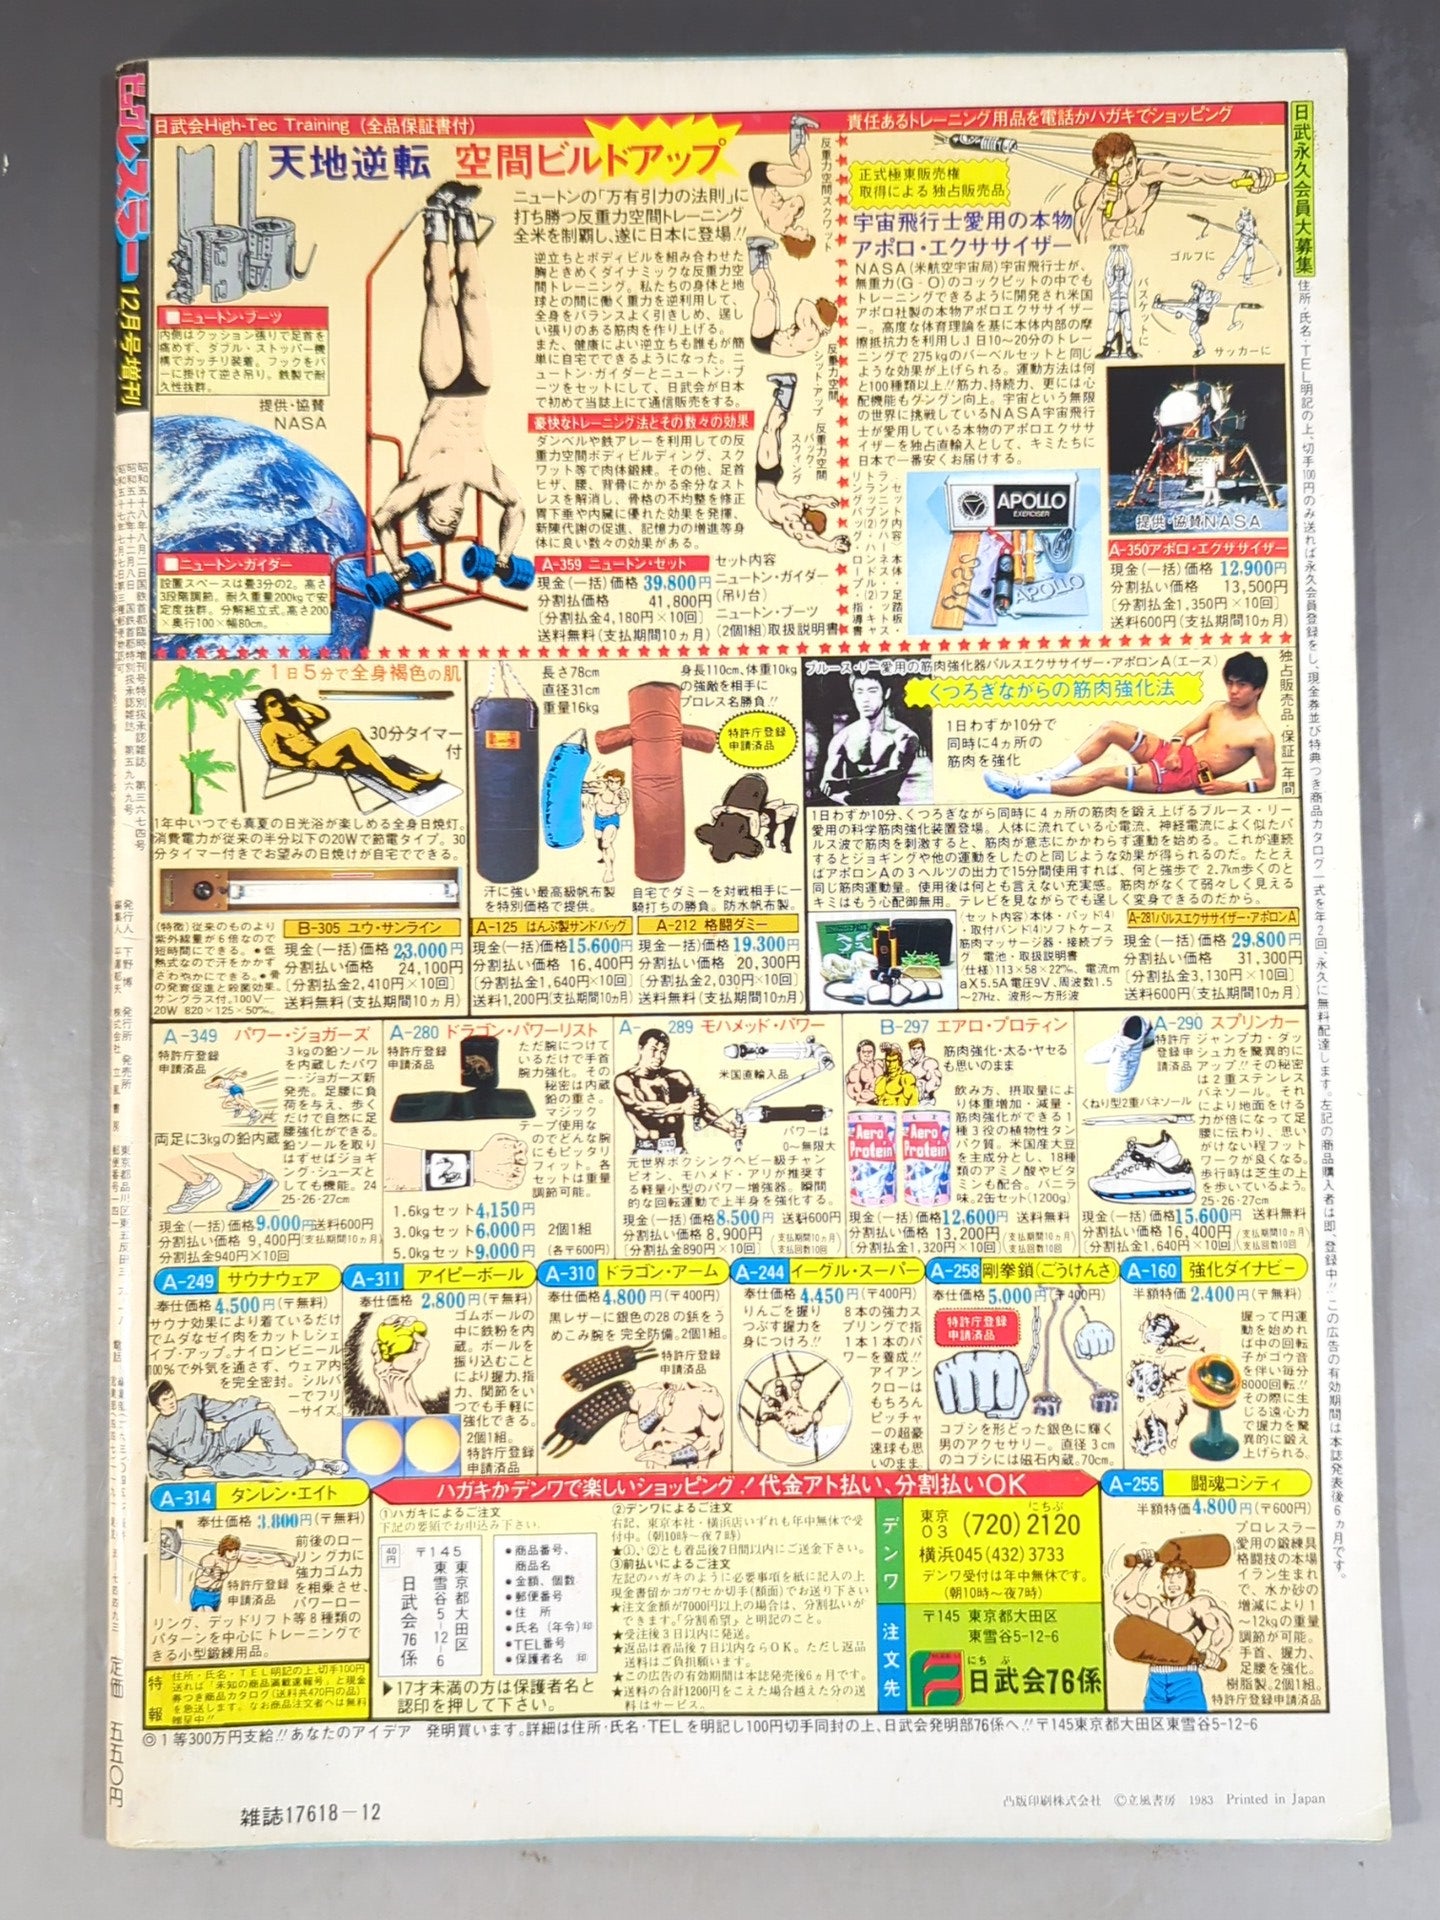 ビッグレスラー 12月号増刊
定価 五五〇円
日武会High-Tec Training (全品保証書付)
天地逆転 空間ビルドアップ
ニュートンの「万有引力の法則」に
打ち勝つ反重力空間トレーニング
全米を制覇し、遂に日本に登場!!
逆立ちとボディビルを組み合わせた
胸ときめくダイナミックな反重力空
間トレーニング。私たちの身体と地
球との間に働く重力を逆利用して、
全身をバランスよく引きしめ、逞し
い張りのある筋肉を作り上げる。
また、健康によい逆立ちも誰もが簡
単に自宅でできるようになった。ニ
ュートン・ガイダーとニュートン・ブ
ーツをセットにして、日武会が日本
で初めて当誌上にて通信販売をする。
豪快なトレーニング法とその数々の効果
ダンベルや鉄アレーを利用しての反
重力空間ボディビルディング、スク
ワット等で肉体鍛練。その他、足首
ヒザ、腰、背骨にかかる余分なスト
レスを解消し、骨格の不均整を修正
胃下垂や内臓に優れた効果を発揮、
新陳代謝の促進、記憶力の増進等身
体に良い数々の効果がある。
■ニュートン・ブーツ
内側はクッション張りで足首を
痛めず、ダブル・ストッパー機
構でガッチリ装着。フックをバ
ーに掛けて逆さ吊り。鉄製で耐
久性抜群。
提供・協賛
NASA
■ニュートン・ガイダー
設置スペースは畳3分の2。高さ
3段階調節。耐久重量200kgで安
定度抜群。分解組立式。高さ200
×奥行100×幅80cm。
反重力空間スクワット
反重力空間シット・アップ
反重力空間バック・スウィング
A-359 ニュートン・セット
現金(一括)価格 39,800円
分割払価格 41,800円
〔分割払金4,180円×10回〕
送料無料(支払期間10ヵ月)
セット内容
ニュートン・ガイダー
(吊り台)
ニュートン・ブーツ
(2個1組)取扱説明書
責任あるトレーニング用品を電話かハガキでショッピング
正式極東販売権
取得による独占販売品
宇宙飛行士愛用の本物
アポロ・エクササイザー
NASA(米航空宇宙局)宇宙飛行士が、
無重力(G-O)のコックピットの中でも
トレーニングできるように開発され米国
アポロ社製の本物アポロエクササイザー
ー。高度な体育理論を基に本体内部の摩
擦抵抗力を利用し、1日10〜20分のトレー
ニングで275kgのバーベルセットと同じ
ような効果が上げられる。運動方法は何
と100種類以上!!筋力、持続力、更には心
配機能もグングン向上。宇宙という無限
の世界に挑戦しているNASA宇宙飛行
士が愛用している本物のアポロエクササ
イザーを独占直輸入として、キミたちに
日本で一番安くお届けする。
ゴルフに
バスケットに
サッカーに
APOLLO
EXERCISER
APOLLO
提供・協賛NASA
A-350アポロ・エクササイザー
現金(一括)価格 12,900円
分割払い価格 13,500円
〔分割払金1,350円×10回〕
送料600円(支払期間10ヵ月)
日武永久会員大募集
住所・氏名・TEL明記の上、切手100円のみ送れば永久会員登録をし、現金券並び特典つき商品カタログ一式を年2回、永久に無料配達します。左記の商品購入者は即、登録中!!この広告の有効期間は本誌発表後6ヵ月です。
1日5分で全身褐色の肌
30分タイマー
付
1年中いつでも真夏の日光浴が楽しめる全身日焼灯。
消費電力が従来の半分以下の20Wで節電タイプ。30
分タイマー付きでお望みの日焼けが自宅でできる。
(特徴)従来のものより
紫外線量が6倍なので
短時間にできる。●低
熱式なので汗をかかず
さわやかにできる。●骨
の発育促進と殺菌効果。
サングラス付。100V-
20W 820×125×50㎜。
B-305 ユウ・サンライン
現金(一括)価格23,000円
分割払い価格 24,100円
〔分割払金2,410円×10回〕
送料無料(支払期間10ヵ月)
長さ78cm
直径31cm
重量16kg
汗に強い最高級帆布製
を特別価格で提供。
A-125 はんぷ製サンドバッグ
現金(一括)価格15,600円
分割払い価格 16,400円
〔分割払金1,640円×10回〕
送料1,200円(支払期間10ヵ月)
身長110cm、体重10kg
の強敵を相手に
プロレス名勝負!!
特許庁登録
申請済品
自宅でダミーを対戦相手に一
騎打ちの勝負。防水帆布製。
A-212 格闘ダミー
現金(一括)価格 19,300円
分割払い価格 20,300円
〔分割払金2,030円×10回〕
送料無料(支払期間10ヵ月)
ブルース・リー愛用の筋肉強化器パルスエクササイザー・アポロンA(エース)
くつろぎながらの筋肉強化法
1日わずか10分で
同時に4ヵ所の
筋肉を強化
独占販売品・保証一年間
1日わずか10分、くつろぎながら同時に4ヵ所の筋肉を鍛え上げるブルース・リー
愛用の科学筋肉強化装置登場。人体に流れている心電流、神経電流によく似たパ
ルス波で筋肉を刺激すると、筋肉が意志にかかわらず運動を始める。これが連続
するとジョギングや他の運動をしたのと同じような効果が得られるのだ。たとえ
ばアポロンAの3ヘルツの出力で15分間使用すれば、何と強歩で2.7km歩くのと
同じ筋肉運動量。使用後は何とも言えない充実感。筋肉がなくて弱々しく見える
キミはもう心配御無用。テレビを見ながらでも逞しく変身できるのだから。
(セット内容)本体・パッド(4)
・取付バンド(4)ソフトケース
筋肉マッサージ器・接続プラ
グ 電池・取扱説明書
(仕様)113×58×22㎜、電流m
aX5.5A電圧9V、周波数1.5
〜27Hz、波形〜方形波
A-281パルスエクササイザー・アポロンA
現金(一括)価格 29,800円
分割払い価格 31,300円
〔分割払金3,130円×10回〕
送料600円(支払期間10ヵ月)
A-349 パワー・ジョガーズ
特許庁登録
申請済品
3kgの鉛ソール
を内蔵したパワ
ー・ジョガーズ新
発売。足腰に負
荷を与え、歩く
だけで自然に足
腰強化ができる。
鉛ソールを取り
はずせばジョギ
ング・シューズと
しても機能。24
25・26・27cm
両足に3kgの鉛内蔵
現金(一括)価格9,000円送料600円
分割払い価格 9,400円(支払期間10ヵ月)
分割払金940円×10回
A-280 ドラゴン・パワーリスト
特許庁登録
申請済品
ただ腕につけて
いるだけで手首
腕力強化。その
秘密は内蔵
鉛の重さ。
マジック
テープ使用な
のでどんな腕
にもピッタリ
フィット。各
セットは重量
調節可能。
1.6kgセット4,150円
3.0kgセット6,000円 2個1組
5.0kgセット9,000円 (各〒600円)
A-289 モハメッド・パワー
米国直輸入品
パワーは
0〜無限大
元世界ボクシングヘビー級チャン
ピオン、モハメド・アリが推奨す
る軽量小型のパワー増強器。瞬間
的な回転運動で上半身を強化する。
現金(一括)価格8,500円 送料600円
分割払い価格 8,900円
〔分割払金890円×10回〕(支払期間10ヵ月 支払回数10回)
B-297 エアロ・プロティン
筋肉強化・太る・ヤセる
も思いのまま
Aero Protein
Aero Protein
飲み方、摂取量によ
り体重増加・減量・
筋肉強化ができる1
種3役の植物性タン
パク質。米国産大豆
を主成分とし、18種
類のアミノ酸やビタ
ミンも配合。バニラ
味。2缶セット(1200g)
現金(一括)価格12,600円 送料無料
分割払い価格 13,200円
〔分割払金1,320円×10回〕(支払期間10ヵ月 支払回数10回)
A-290 スプリンカー
特許庁
登録申
請済品
ジャンプ力・ダッ
シュ力を驚異的に
アップ!!その秘密
は2重ステンレス
バネソール。それ
により地面をける
力が倍になって足
腰に伝わり、思い
がけない程フット
ワークが良くなる。
歩行時は芝生の上
を歩いているよう。
25・26・27cm
くねり型2重バネソール
現金(一括)価格15,600円 送料無料
分割払い価格 16,400円
〔分割払金1,640円×10回〕(支払期間10ヵ月 支払回数10回)
A-249 サウナウェア
奉仕価格 4,500円(〒無料)
サウナ効果により着ているだけ
でムダなゼイ肉をカットしシェ
イプ・アップ。ナイロンビニール
100%で外気を通さず、ウェア内
を完全密封。シルバ
ーでフリ
ーサイズ。
A-311 アイピーボール
奉仕価格 2,800円(〒無料)
ゴムボールの
中に鉄粉を内
蔵。ボールを
握り込むこと
により握力、指
力、関節をい
つでも手軽に
強化できる。
2個1組。
特許庁登録
申請済品
A-310 ドラゴン・アーム
奉仕価格 4,800円(〒400円)
黒レザーに銀色の28の鋲をう
めこみ腕を完全防備。2個1組。
特許庁登録
申請済品
A-244 イーグル・スーパー
奉仕価格 4,450円(〒400円)
りんごを握り
つぶす握力を
身につけろ!!
8本の強力ス
プリングで指
1本1本のパ
ワーを養成!!
アイアン
クローは
もちろん
ピッチャ
ーの超豪
速球も思
いのまま。
A-258 剛拳鎖(ごうけんさ)
奉仕価格 5,000円(〒400円)
特許庁登録
申請済品
コブシを形どった銀色に輝く
男のアクセサリー。直径3cm
のコブシには磁石内蔵。70cm。
A-160 強化ダイナビー
半額特価 2,400円(〒無料)
握って円運
動を始めれ
は中の回転
子がゴウ音
を伴い毎分
8000回転!!
その際に生
じる遠心力
で握力を驚
異的に鍛え
上げられる。
A-314 タンレン・エイト
奉仕価格 3,800円(〒無料)
前後のロー
リング力に
強力ゴム力
を相乗させ、
パワーロー
特許庁登録
申請済品
リング、デッドリフト等8種類の
パターンを中心にトレーニングで
きる小型鍛練用品。
特報
住所・氏名・TEL明記の上、切手100円
送れば「未知の商品満載速報号」と現金
券つき商品カタログ(送料共470円の品)
を急送します。なお商品注文者へは無料
贈呈中!!
ハガキかデンワで楽しいショッピング!代金アト払い、分割払いOK
①ハガキによるご注文
下記の要領でお申込み下さい。
40円
〒145
東京都大田区
東雪谷5-12-6
日武会76係
●商品番号、
商品名
●金額、個数
●郵便番号
●住 所
●氏名(年令)印
●TEL番号
●保護者名 印
▶17才未満の方は保護者名と
認印を押して下さい。
②デンワによるご注文
右記、東京本社・横浜店いずれも年中無休で受
付中。(朝10時〜夜7時)
★①、②とも着品後7日間以内にご送金下さい。
③前払いによるご注文
左記のハガキのように必要事項を紙に記入の上
現金書留かコガワセか切手(額面)でお送り下さい
★注文金額が7000円以上の場合は、分割払いが
できます。「分割希望」と明記のこと。
★受注後3日以内に発送。
★返品は着品後7日以内ならOK。ただし返品
送料はご負担願います。
★この広告の有効期間は本誌発売後6ヵ月です。
★送料の合計1200円をこえた場合越えた分の送
料はサービス。
デンワ
東京 03 (720)2120
にちぶ
横浜045(432)3733
デンワ受付は年中無休です。
(朝10時〜夜7時)
注文先
〒145 東京都大田区
東雪谷5-12-6
にちぶ
日武会76係
A-255 闘魂コシティ
半額特価 4,800円(〒600円)
プロレスラー
愛用の鍛練具
格闘技の本場
イラン生まれ
で、水か砂の
増減により1
〜12kgの重量
調節が可能。
手首、握力、
足腰を強化。
樹脂製。2個1組。
特許庁登録申請済品
◎1等300万円支給!!あなたのアイデア 発明買います。詳細は住所・氏名・TELを明記し100円切手同封の上、日武会発明部76係へ!!〒145東京都大田区東雪谷5-12-6
雑誌17618-12
凸版印刷株式会社 ©立風書房 1983 Printed in Japan